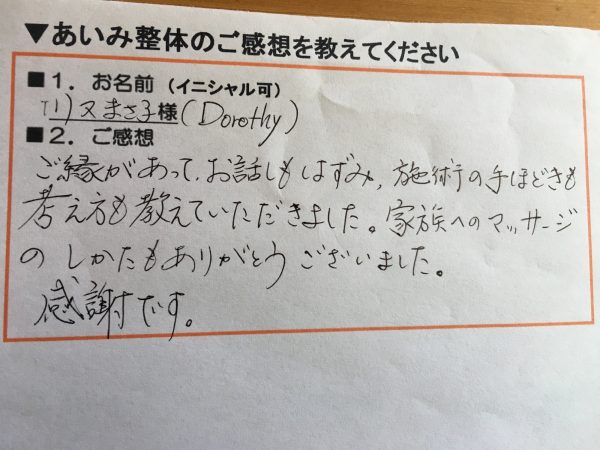 ▼あいみ整体のご感想を教えてください
■1. お名前（イニシャル可）
又まさ子様(Dorothy)
■2. ご感想
ご縁があって、お話しもはずみ、施術の手ほどきも
考え方も教えていただきました。家族へのマッサージ
のしかたもありがとうございました。
感謝です。